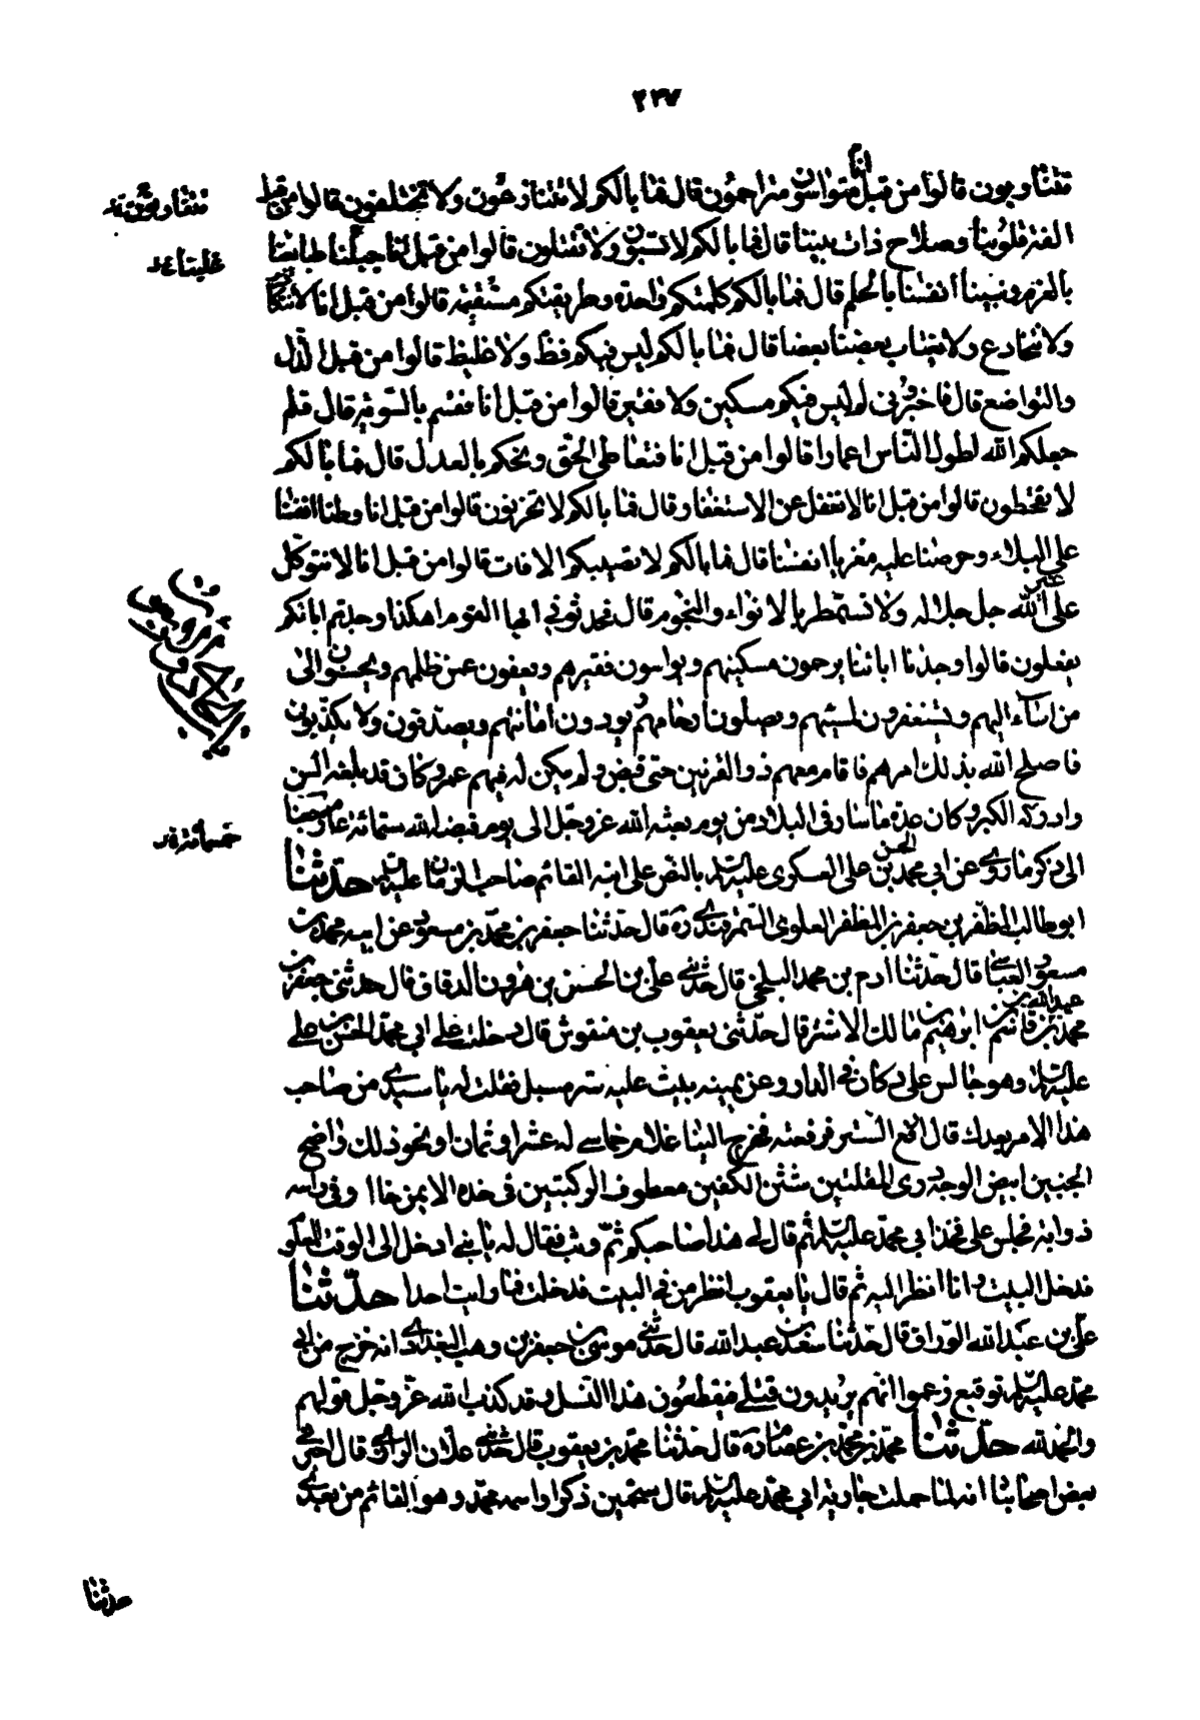 ٢٣٧
تتفاوبون قالوا من قبل انا متواسون متراحمون قال فما بالكم لا تتنازعون ولا تختلفون قالوا من قبل
الفة قلوبنا وصلاح ذات بيننا قال فما بالكم لا تستبون ولا تقتلون قالوا من قبل انا جبلنا طبائعنا
بالعزم وسسنا انفسنا بالحلم قال فما بالكم كلمتكم واحدة وطريقتكم مستقيمة قالوا من قبل انا لا نتكاذب
ولا نتخادع ولا يغتاب بعضنا بعضا قال فما بالكم ليس فيكم فظ ولا غليظ قالوا من قبل الذل
والتواضع قال فاخبروني لم ليس فيكم مسكين ولا فقير قالوا من قبل انا نقسم بالسوية قال فلم
جعلكم الله اطول الناس اعمارا قالوا من قبل انا نتعاطى الحق ونحكم بالعدل قال فما بالكم
لا تقحطون قالوا من قبل انا لا نغفل عن الاستغفار قال فما بالكم لا تحزنون قالوا من قبل انا وطنا انفسنا
على البلاء وحرصنا عليه فعزينا انفسنا قال فما بالكم لا تصيبكم الافات قالوا من قبل انا لا نتوكل
على غير الله جل جلاله ولا نستمطر بالانواء والنجوم قال فحدثوني ايها القوم اهكذا وجدتم اباءكم
يفعلون قالوا وجدنا اباءنا يرحمون مسكينهم ويواسون فقيرهم ويعفون عمن ظلمهم ويحسنون الى
من اساء اليهم ويستغفرون لمسيئهم ويصلون ارحامهم يؤدون اماناتهم ويصدقون ولا يكذبون
فاصلح الله بذلك امرهم فاقام معهم ذو القرنين حتى قبض ولم يكن له فيهم عمر وكان قد بلغه السن
وادركه الكبر وكان عدة ما سار في البلاد من يوم بعثه الله عز وجل الى يوم قبضه الله ستمائة عام رجعنا
الى ذكر ما روي عن ابي محمد الحسن بن علي العسكري عليه السلام بالنص على ابنه القائم صاحب الزمان عليه السلام حدثنا
ابو طالب المظفر بن جعفر بن المظفر العلوي السمرقندي ره قال حدثنا جعفر بن محمد بن مسعود عن ابيه محمد بن
مسعود العياشي قال حدثنا ادم بن محمد البلخي قال حدثني علي بن الحسن بن هرون الدقاق قال حدثني جعفر بن
محمد بن عبد الله بن قاسم بن ابرهيم بن مالك الاشتر قال حدثني يعقوب بن منقوش قال دخلت على ابي محمد الحسن بن علي
عليه السلام وهو جالس على دكان في الدار وعن يمينه بيت عليه ستر مسبل فقلت له يا سيدي من صاحب
هذا الامر بعدك قال ارفع الستر فرفعته فخرج الينا غلام خماسي له عشر او ثمان او نحو ذلك واضح
الجبين ابيض الوجه دري المقلتين شثن الكفين معطوف الركبتين في خده الايمن خال وفي راسه
ذوابة فجلس على فخذ ابي محمد عليه السلام ثم قال لي هذا صاحبكم ثم وثب فقال له يا بني ادخل الى الوقت المعلوم
فدخل البيت وانا انظر اليه ثم قال يا يعقوب انظر من في البيت فدخلت فما رايت احدا حدثنا
علي بن عبد الله الوراق قال حدثنا سعد بن عبد الله قال حدثني موسى بن جعفر بن وهب البغدادي انه خرج من ابي
محمد عليه السلام توقيع زعموا انهم يريدون قتلي فيقطعون هذا النسل وقد كذب الله عز وجل قولهم
والحمد لله حدثنا محمد بن محمد بن عصام ره قال حدثنا محمد بن يعقوب قال حدثني علان الرازي قال اخبرني
بعض اصحابنا انه لما حملت جارية ابي محمد عليه السلام قال ستحملين ذكرا واسمه محمد وهو القائم من بعدي
غلبنا
خمسمائة
حدثنا